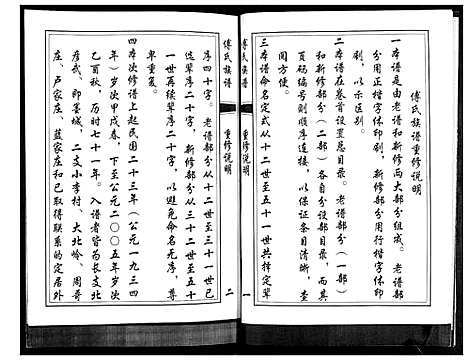 傅氏族谱重修说明
一本谱是由老谱和新修两大部分组成。老谱部
分用正楷字体印刷，新修部分用行楷字体印
刷，以示区别。
二本谱在卷首设置总目录。老谱部分（一部）
和新修部分（二部）各自分设部目录，而其
页码编号则顺序连接，以保证条目清晰，查
阅方便。
三本谱命名定式从十二世至五十一世共择定辈
傅氏族谱
重修说明
一
傅氏族谱
重修说明
二
序四十字。老谱部分从十二世至三十一世已
选辈序二十字，新修部分从三十二世至五十
一世再续辈序二十字，以避免命名无序，尊
卑重复。
四本次修谱上起民国二十三年（公元一九三四
年）岁次甲戌春，下至公元二〇〇五年岁次
乙酉秋，历时七十一年。入谱者皆为长支北
彦武、即墨城，二支小李村、大北岭、周哥
庄、卢家庄、蓝家庄和已取得联系的定居外